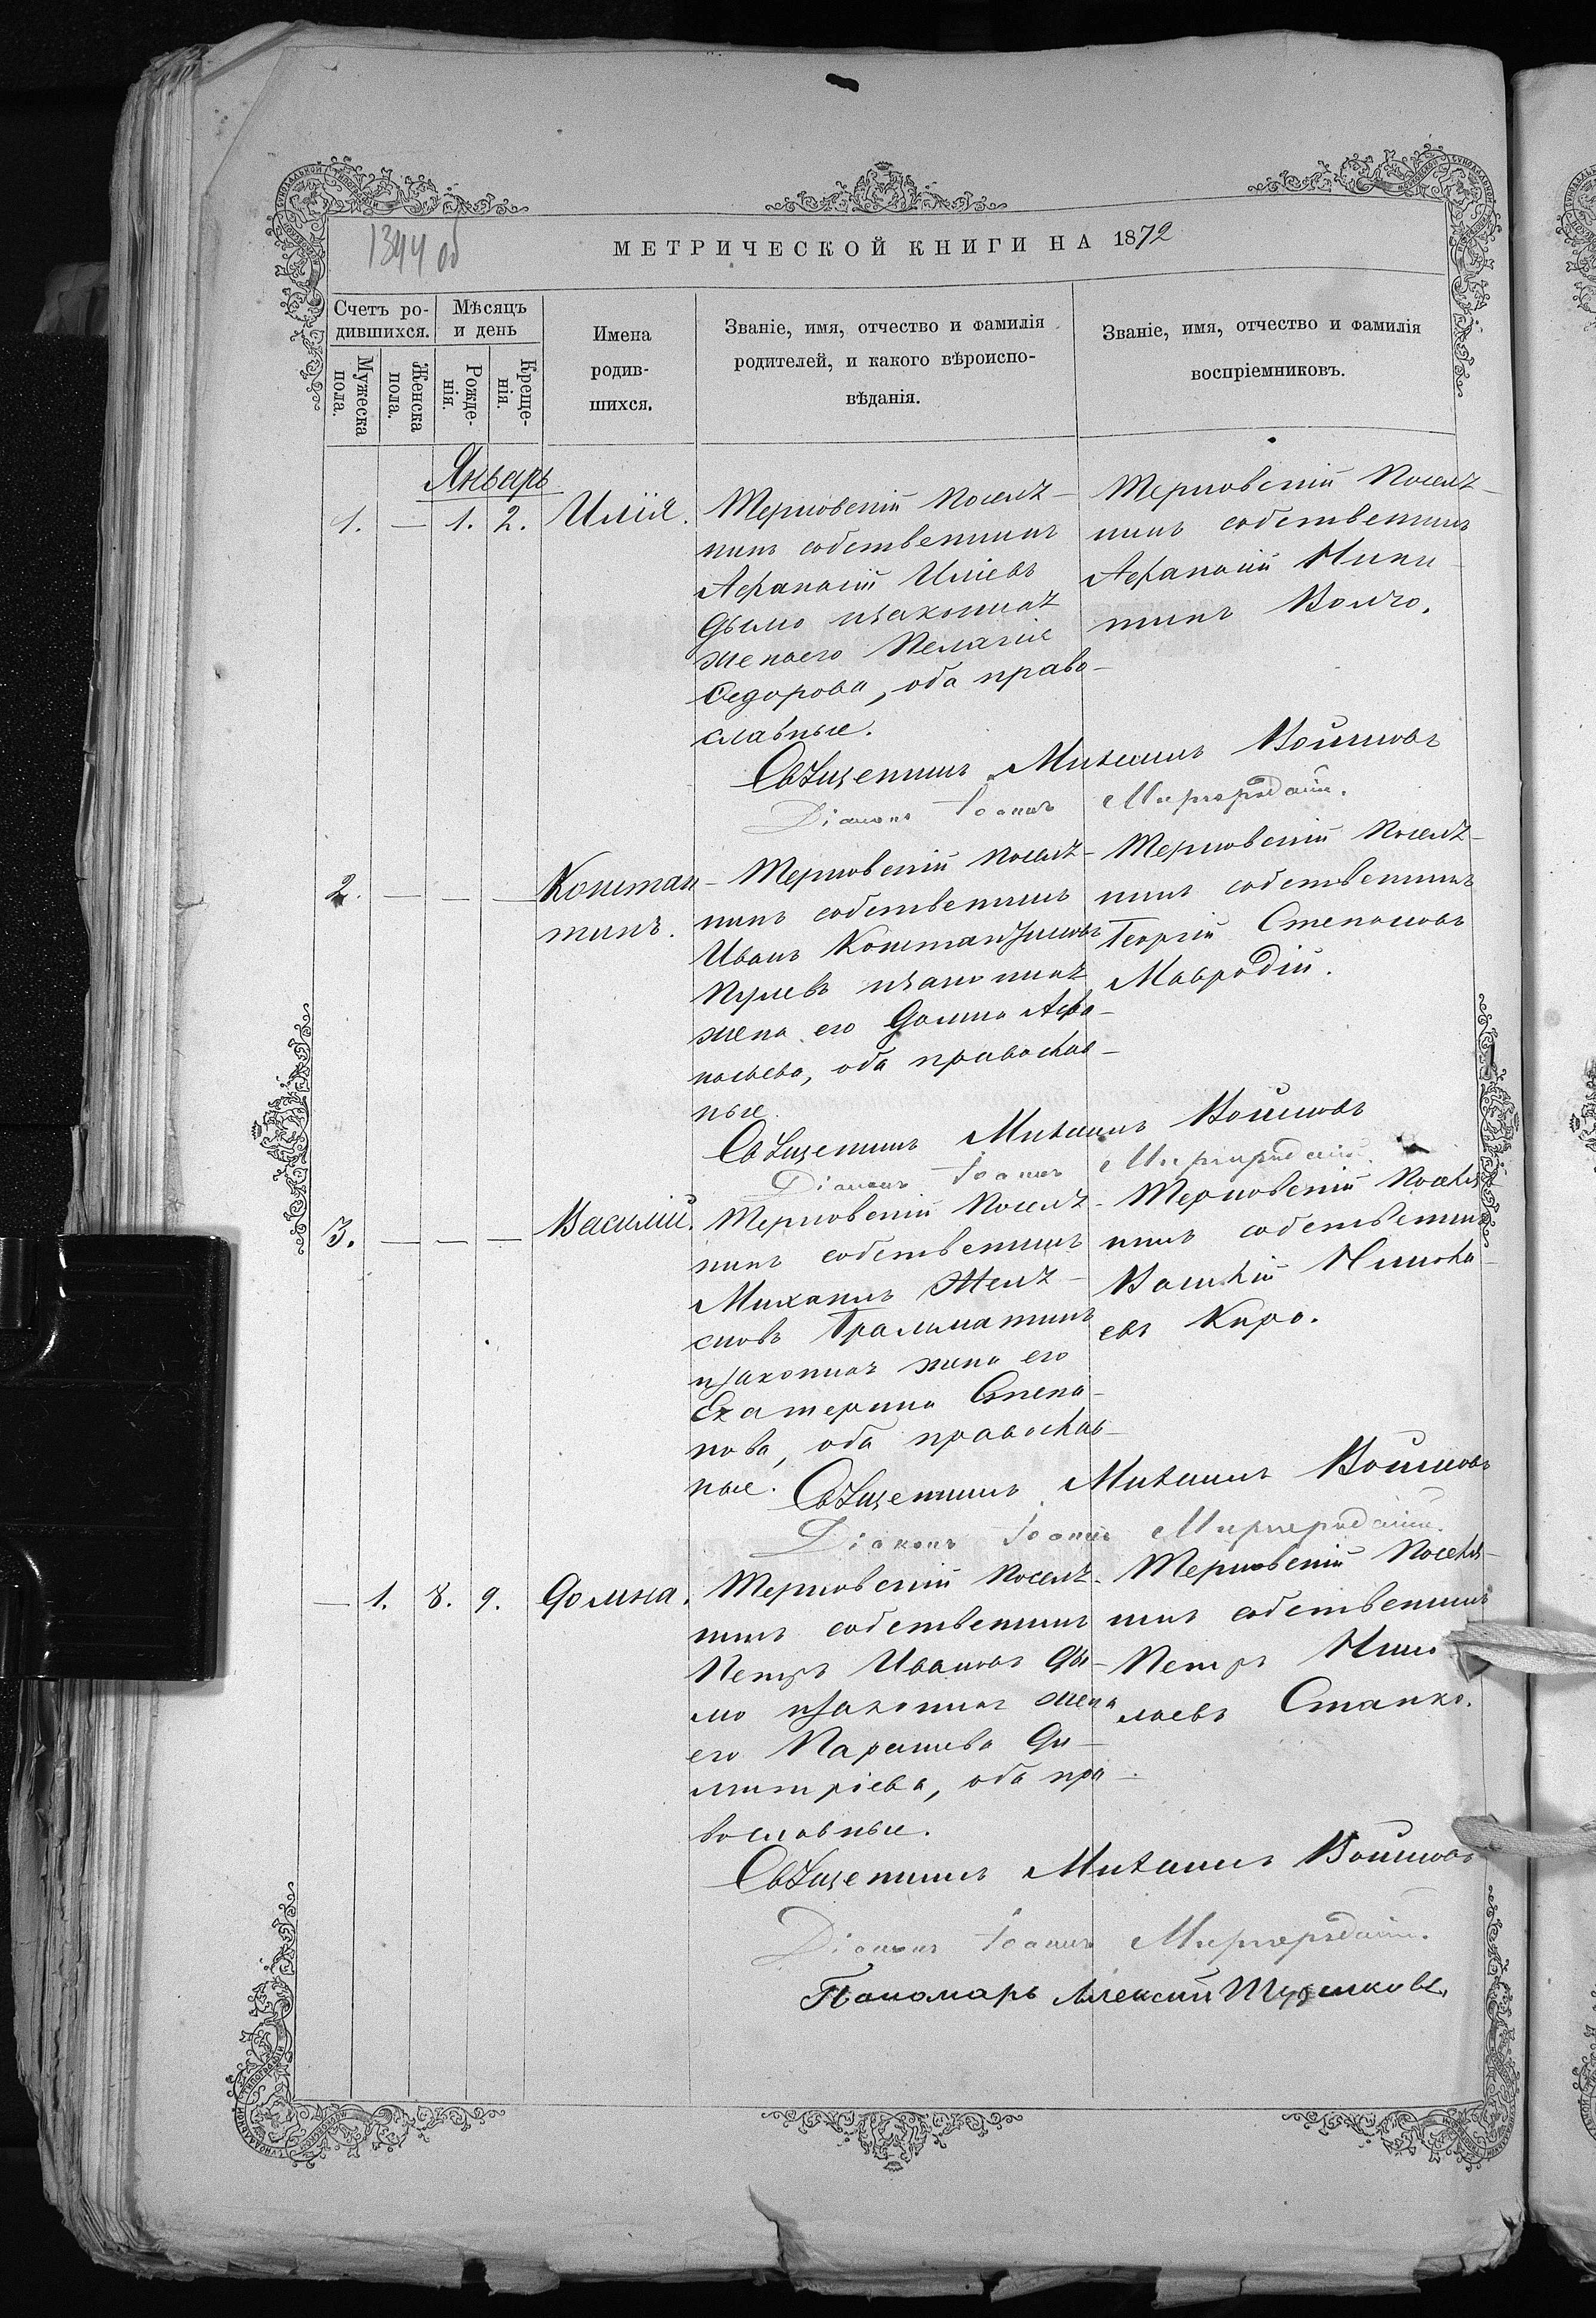 1344 об
МЕТРИЧЕСКОЙ КНИГИ НА 1872
Счетъ ро-
дившихся.
Мѣсяцъ
и день
Мужеска
пола.
Женска
пола.
Рожде-
нія.
Креще-
нія.
Имена
родив-
шихся.
Званіе, имя, отчество и фамилія
родителей, и какого вѣроиспо-
вѣданія.
Званіе, имя, отчество и фамилія
воспріемниковъ.
Январь
1. — 1. 2. Илія.
Терновскій поселѣ-
нинъ собственникъ
Афанасій Иліевъ
Дымо изаконная
жена его Пелагія
Федорова, оба право-
славные.
Терновскій поселѣ-
нинъ собственникъ
Афанасій Ники-
тинъ Волчо.
Священникъ Михаилъ Войновъ
Діаконъ Іоаннъ
2. — — — Констан-
тинъ.
Терновскій поселѣ-
нинъ собственникъ
Иванъ Константиновъ
изаконная
жена его Домна Афа-
насьева, оба православ-
ные.
Терновскій поселѣ-
нинъ собственникъ
Георгій Степановъ
Мавродій.
Священникъ Михаилъ Войновъ
Діаконъ Іоаннъ
3. — — — Василій.
Терновскій поселѣ-
нинъ собственникъ
Михаилъ Желѣ-
сковъ Граматикъ
изаконная жена его
Екатерина Степа-
нова, оба православ-
ные.
Терновскій поселя-
нинъ собственникъ
Василій Никола-
евъ Киро.
Священникъ Михаилъ Войновъ
Діаконъ Іоаннъ
— 1. 8. 9. Домна.
Терновскій поселѣ-
нинъ собственникъ
Петръ Ивановъ Ды-
мо изаконная жена
его Параскева Ди-
митріева, оба пра-
вославные.
Терновскій поселя-
нинъ собственникъ
Петръ Нико
лаевъ Станко.
Священникъ Михаилъ Войновъ
Діаконъ Іоаннъ
Пономарь Алексій